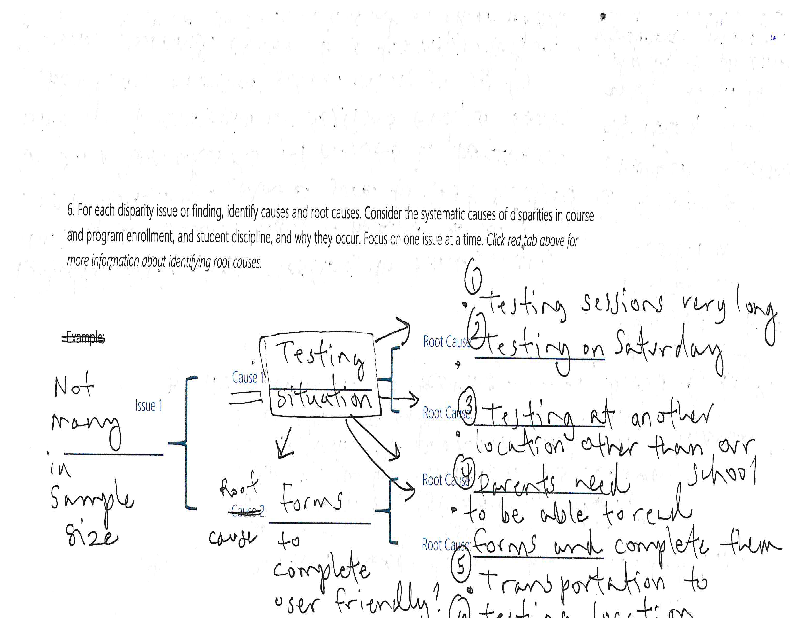 6. For each disparity issue or finding, identify causes and root causes. Consider the systematic causes of disparities in course
and program enrollment, and student discipline, and why they occur. Focus on one issue at a time. Click red tab above for
more information about identifying root causes.
Example
Not
many
in
Sample
size
Issue 1
Cause 1
Testing
situation
Root
Cause 2
cause
forms
to
complete
user friendly?
Root Cause
① Testing sessions very long
② testing on Saturday
Root Cause
③ Testing at another
location other than our
school
Root Cause
④ parents need
to be able to read
Root Cause
forms and complete them
⑤ Transportation to
testing location